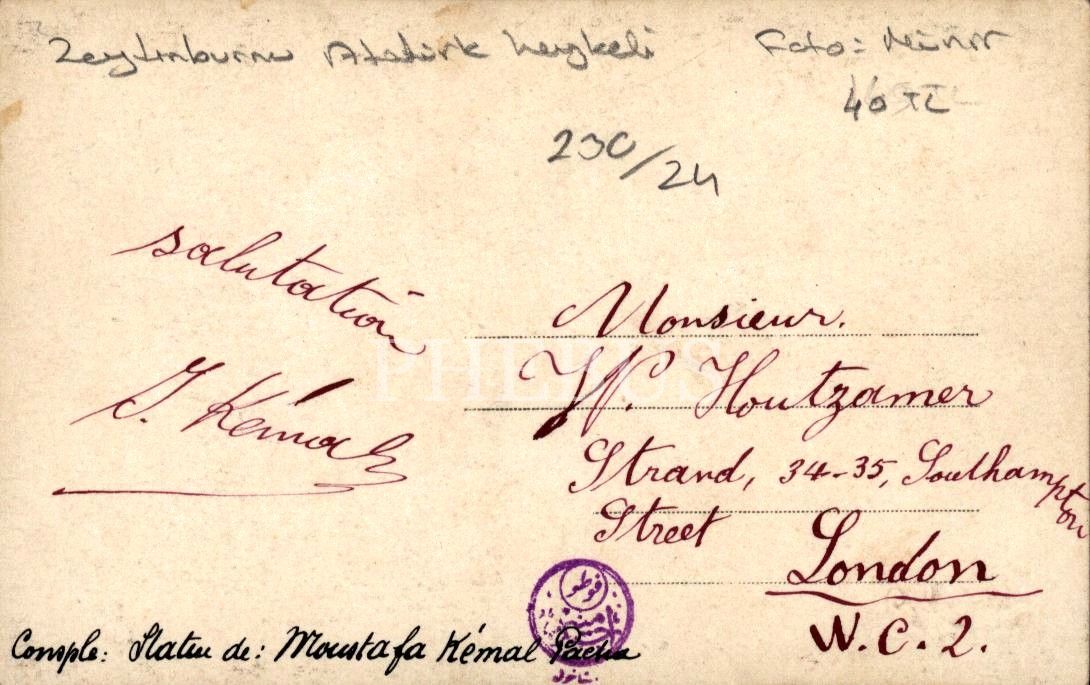 Zeytinburnu Atatürk heykeli Foto: Münir
40 TL
230/24
salutation
Monsieur.
PHEBUS
Houtzamer
J. Kémal
Strand, 34-35, Southampton
Street
London
W.C.2.
فوطو
Consple: Statue de: Moustafa Kémal Pacha